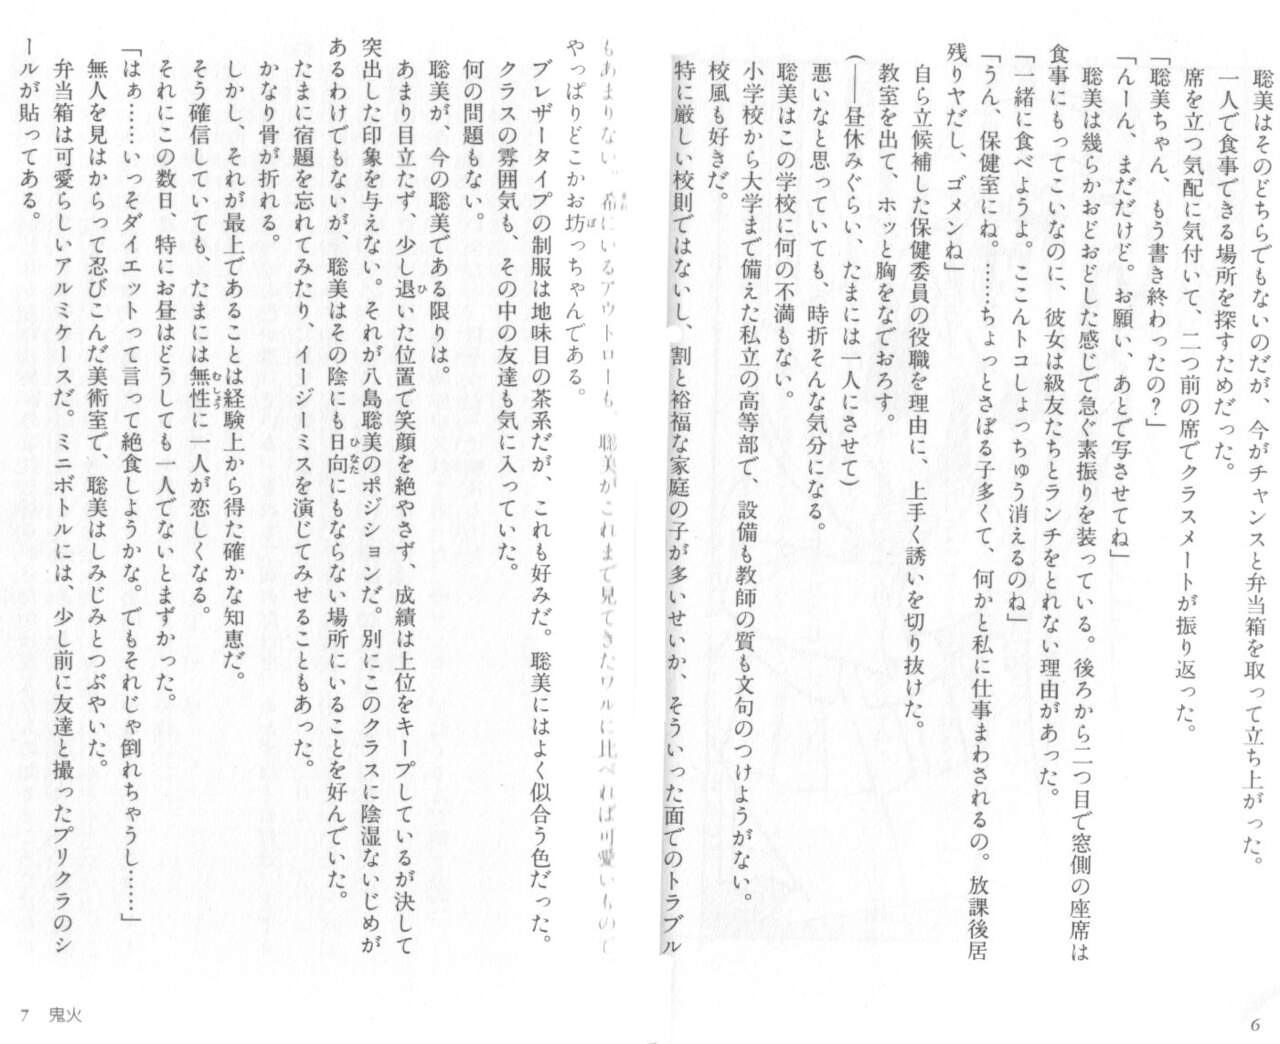 聡美はそのどちらでもないのだが、今がチャンスと弁当箱を取って立ち上がった。
一人で食事できる場所を探すためだった。
席を立つ気配に気付いて、二つ前の席でクラスメートが振り返った。
「聡美ちゃん、もう書き終わったの?」
「んーん、まだだけど。お願い、あとで写させてね」
聡美は幾らかおどおどした感じで急ぐ素振りを装っている。後ろから二つ目で窓側の座席は
食事にもってこいなのに、彼女は級友たちとランチをとれない理由があった。
「一緒に食べようよ。ここんトコしょっちゅう消えるのね」
「うん、保健室にね。……ちょっとさぼる子多くて、何かと私に仕事まわされるの。放課後居
残りヤだし、ゴメンね」
自ら立候補した保健委員の役職を理由に、上手く誘いを切り抜けた。
教室を出て、ホッと胸をなでおろす。
(――昼休みぐらい、たまには一人にさせて)
悪いなと思っていても、時折そんな気分になる。
聡美はこの学校に何の不満もない。
小学校から大学まで備えた私立の高等部で、設備も教師の質も文句のつけようがない。
校風も好きだ。
特に厳しい校則ではないし、割と裕福な家庭の子が多いせいか、そういった面でのトラブル
もあまりない。稀にいるアウトローも、聡美がこれまで見てきたワルに比べれば可愛いもので
やっぱりどこかお坊っちゃんである。
ブレザータイプの制服は地味目の茶系だが、これも好みだ。聡美にはよく似合う色だった。
クラスの雰囲気も、その中の友達も気に入っていた。
何の問題もない。
聡美が、今の聡美である限りは。
あまり目立たず、少し退いた位置で笑顔を絶やさず、成績は上位をキープしているが決して
突出した印象を与えない。それが八島聡美のポジションだ。別にこのクラスに陰湿ないじめが
あるわけでもないが、聡美はその陰にも日向にもならない場所にいることを好んでいた。
たまに宿題を忘れてみたり、イージーミスを演じてみせることもあった。
かなり骨が折れる。
しかし、それが最上であることは経験上から得た確かな知恵だ。
そう確信していても、たまには無性に一人が恋しくなる。
それにこの数日、特にお昼はどうしても一人でないとまずかった。
「はぁ……いっそダイエットって言って絶食しようかな。でもそれじゃ倒れちゃうし……」
無人を見はからって忍びこんだ美術室で、聡美はしみじみとつぶやいた。
弁当箱は可愛らしいアルミケースだ。ミニボトルには、少し前に友達と撮ったプリクラのシ
ールが貼ってある。
6
7 鬼火